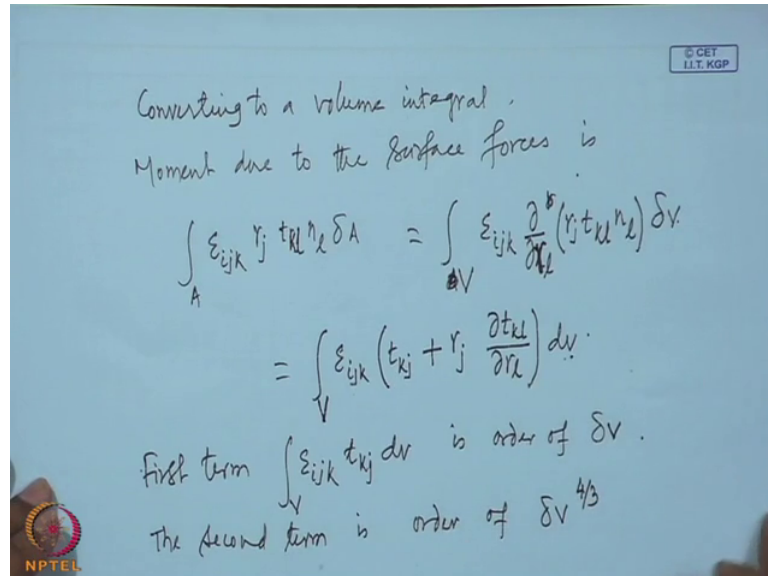 © CET
I.I.T. KGP
Converting to a volume integral.
Moment due to the surface forces is
∫_A ε_ijk r_j t_kl n_l δA = ∫_V ε_ijk ∂/∂r_l (r_j t_kl n_l) δV.
= ∫_V ε_ijk (t_kj + r_j ∂t_kl/∂r_l) dv.
First term ∫_V ε_ijk t_kj dv is order of δV.
The second term is order of δV^4/3
NPTEL